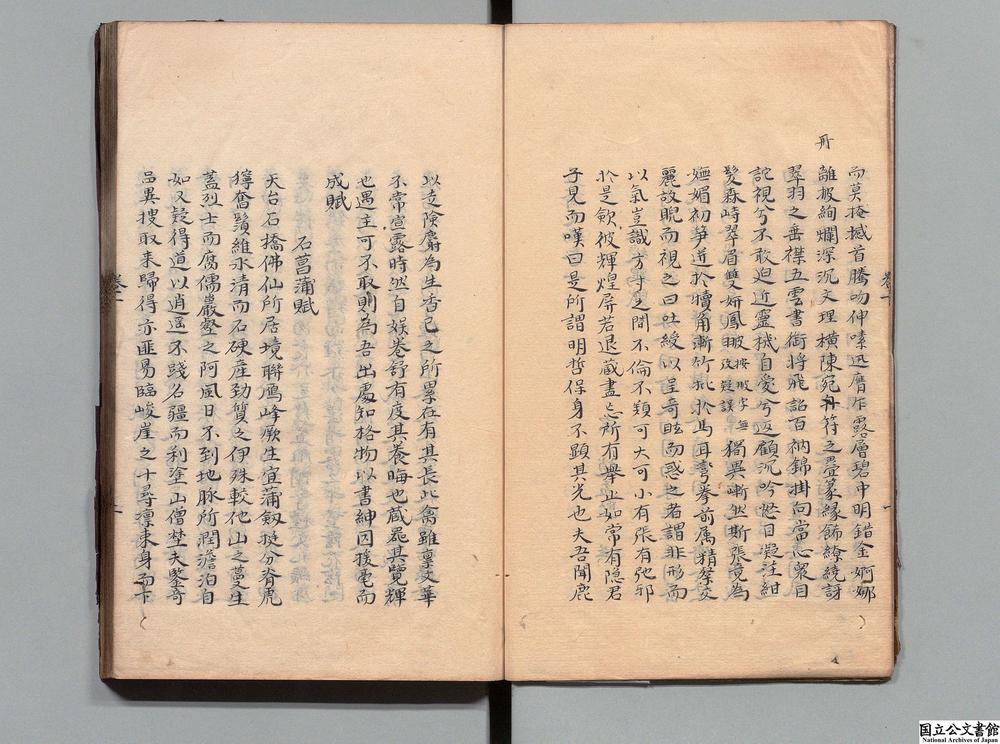 而莫掩撼首騰吻伸嗉迅膺乍露層碧中明錯金婀娜
離披絢爛深沉文理横陳宛冉符之疊篆縁飾繚繞訝
冉
翠羽之垂襟五雲書銜將飛詔百衲錦掛向當心衆目
詫視兮不敢迫近靈機自愛兮返顧沉吟怒目凝注紺
髪森峙翠眉雙妍鳳 按 字無攷疑誤 獨異嶄然斯張竟為
嫵媚初笋迸於犢角漸竹批於馬耳彎拳前属精祭交
麗故睨而視之曰吐綬以呈奇眩而惑之者謂非形而
以氣豈識方寸之間不倫不類可大可小有張有弛邪
於是歛彼輝煌屏若退蔵盡忘所有舉止如常有隠君
子見而嘆曰是所謂明哲保身不顕其光也夫吾聞鹿
以走険麝為生香已之所累在有其長此禽雖禀文華
不常宣露時然自娯巻舒有度其養晦也蔵器其覽輝
也遇主可不取則為吾出處知格物以書紳因援毫而
成賦
石菖蒲賦
天台石橋佛仙所居境聯鴈峰厥生宜蒲劔挺分脊虎
獰奮鬚維水清而石硬産勁質之伊殊較他山之蔓生
蓋烈士而腐儒巖壑之阿風日不到地脉所潤澹泊自
如又疑得道以逍遥不踐名疆而利塗山僧埜夫鑒奇
品異捜取来歸得亦匪易臨峻崖之十尋凛束身而下
巻十
一
国立公文書館
National Archives of Japan